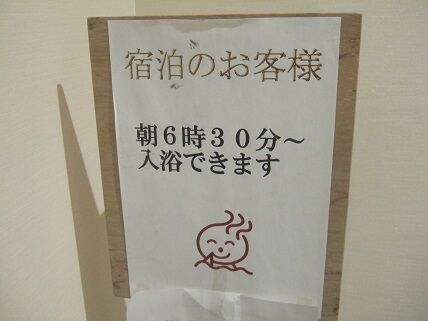 宿泊のお客様
朝６時３０分～
入浴できます